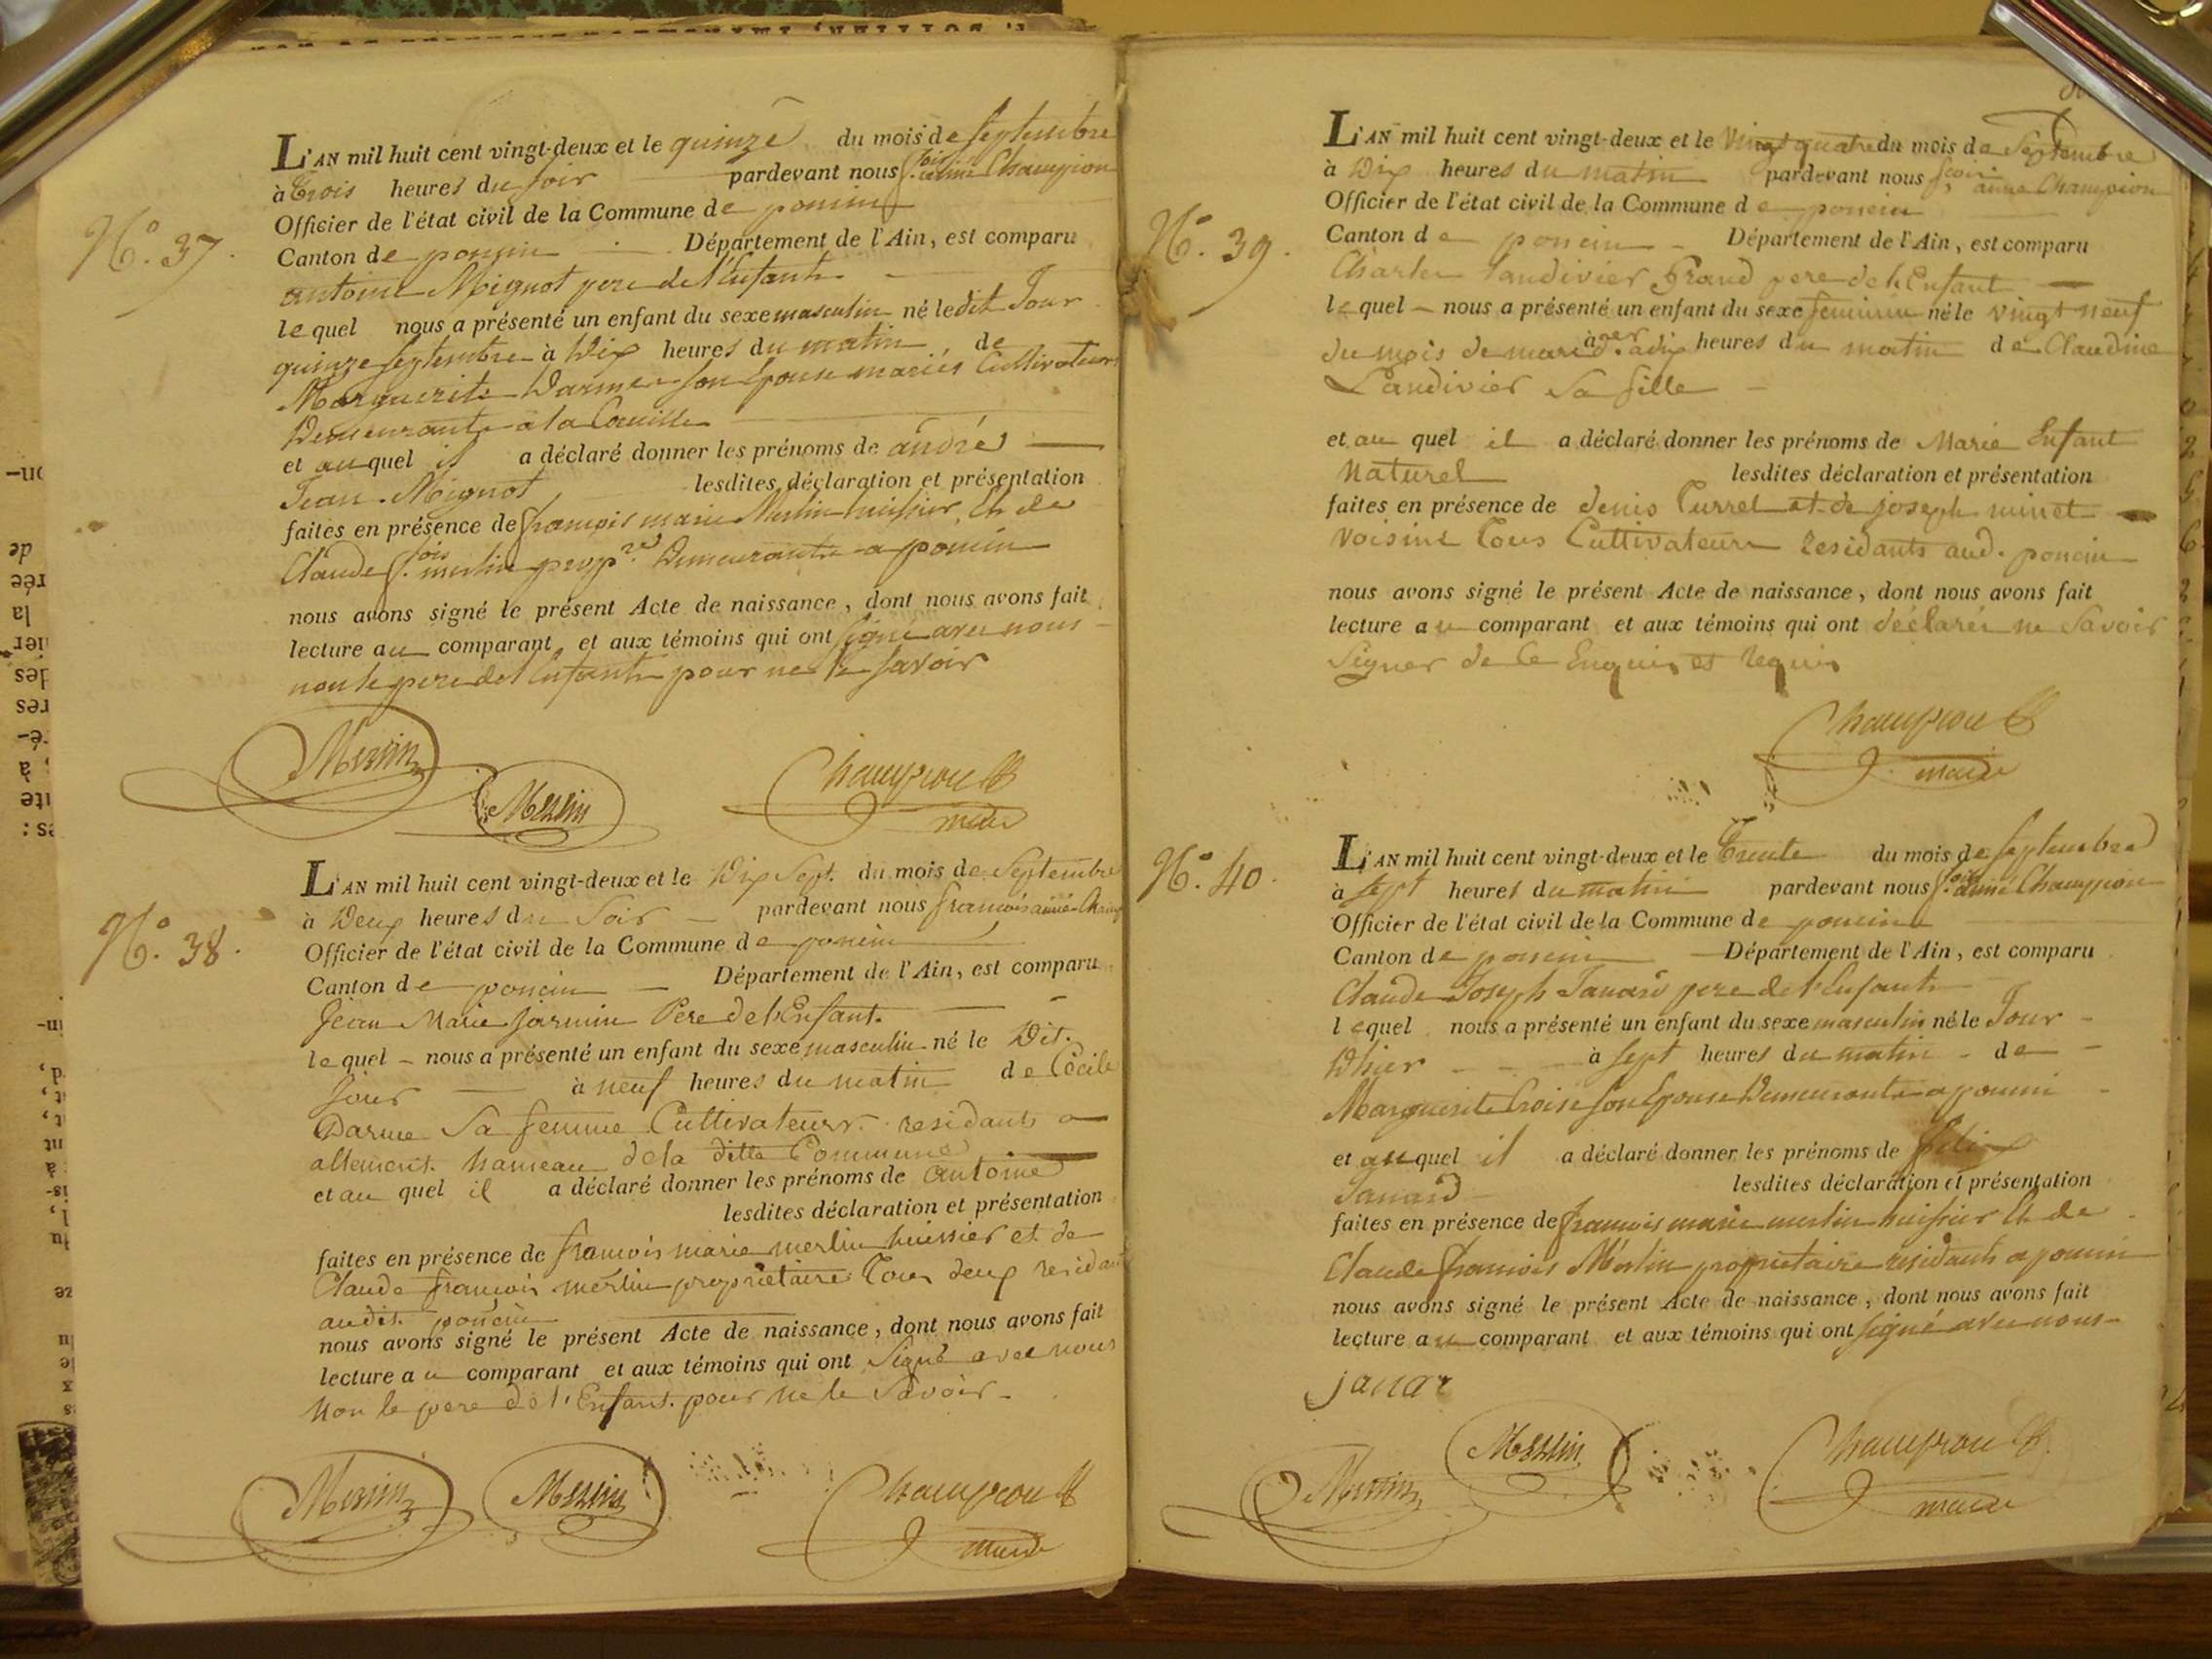 N.° 37.
L'AN mil huit cent vingt-deux et le quinze du mois de septembre
à trois heures du soir pardevant nous f.ois aimé Champion
Officier de l'état civil de la Commune de poncin
Canton de poncin Département de l'Ain, est comparu
antoine Mignot pere de l'Enfant
lequel nous a présenté un enfant du sexe masculin né ledit Jour
quinze septembre à Dix heures du matin, de
Marguerite Darme son Epouse mariés Cultivateurs
Demeurants a la
et au quel il a déclaré donner les prénoms de andré
Jean Mignot lesdites déclaration et présentation
faites en présence de françois marie Merlin huissier, Et de
Claude f.ois merlin prop.re Demeurants a poncin
nous avons signé le présent Acte de naissance, dont nous avons fait
lecture au comparant et aux témoins qui ont signé avec nous
non le pere de l'Enfant pour ne le savoir
Merlin
Merlin
Champion
maire
N.° 38.
L'AN mil huit cent vingt-deux et le Dix Sept. du mois de Septembre
à Deux heures du Soir pardevant nous francois aimé Champ
Officier de l'état civil de la Commune de poncin
Canton de poncin Département de l'Ain, est comparu
Jean Marie Jarmin Pere de l'Enfant.
lequel nous a présenté un enfant du sexe masculin né le Dit.
Jour à neuf heures du matin de Cécile
Darme Sa femme Cultivateurs residants a
allement hameau de la ditte Commune
et au quel il a déclaré donner les prénoms de antoine
lesdites déclaration et présentation
faites en présence de francois marie merlin huissier et de
Claude francois merlin propriétaire Tous deux residants
audit poncin
nous avons signé le présent Acte de naissance, dont nous avons fait
lecture au comparant et aux témoins qui ont Signé avec nous
Non le pere de l'Enfant pour ne le Savoir
Merlin
Merlin
Champion
maire
N.° 39.
L'AN mil huit cent vingt-deux et le Vingt quatre du mois de Septembre
à Dix heures du matin pardevant nous fcois aimé Champion
Officier de l'état civil de la Commune de poncin
Canton de poncin Département de l'Ain, est comparu
Charles Landivier Grand pere de l'Enfant
lequel nous a présenté un enfant du sexe feminin né le vingt neuf
du mois de à dix heures du matin de Claudine
Landivier Sa fille
et au quel il a déclaré donner les prénoms de Marie Enfant
Naturel lesdites déclaration et présentation
faites en présence de denis Turrel et de joseph minet
Voisins Tous Cultivateurs residants aud. poncin
nous avons signé le présent Acte de naissance, dont nous avons fait
lecture au comparant et aux témoins qui ont déclarés ne Savoir
Signer de Ce Enquis et Requis
Champion
maire
N.° 40.
L'AN mil huit cent vingt-deux et le Trente du mois de septembre
à sept heures du matin pardevant nous f.ois aimé Champion
Officier de l'état civil de la Commune de poncin
Canton de poncin Département de l'Ain, est comparu
Claude Joseph Janard pere de l'Enfant
lequel nous a présenté un enfant du sexe masculin né le Jour
D'hier à sept heures du matin de
Marguerite son Epouse Demeurants a poncin
et au quel il a déclaré donner les prénoms de félix
Janard lesdites déclaration et présentation
faites en présence de francois marie merlin huissier Et de
Claude francois Merlin propriétaire residants a poncin
nous avons signé le présent Acte de naissance, dont nous avons fait
lecture au comparant et aux témoins qui ont signé avec nous
janar
Merlin
Merlin
Champion
maire